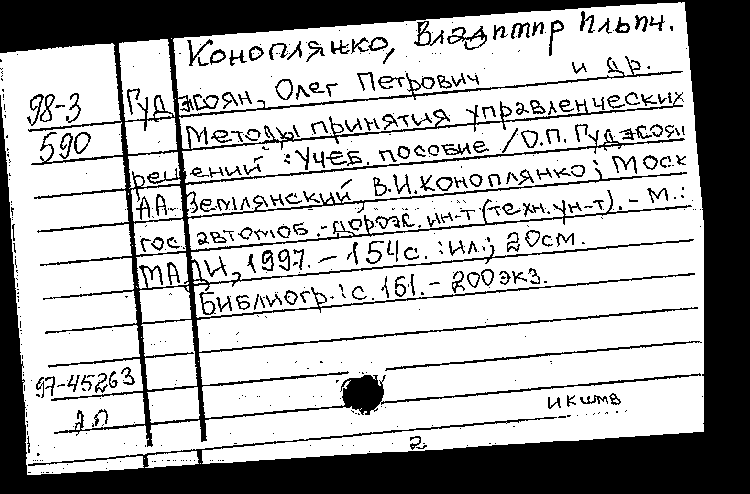 Коноплянко, Владимир Ильич.
98-3 Гуджоян, Олег Петрович и др.
590 Методы принятия управленческих
решений : Учеб. пособие / О.П. Гуджоян
А.А. Землянский, В.И. Коноплянко ; Моск
гос. автомоб.-дорож. ин-т (техн. ун-т). - М. :
МАДИ, 1997. - 154с. : ил. ; 20см.
Библиогр.: с. 151. - 200 экз.
97-45263
икшмв
2